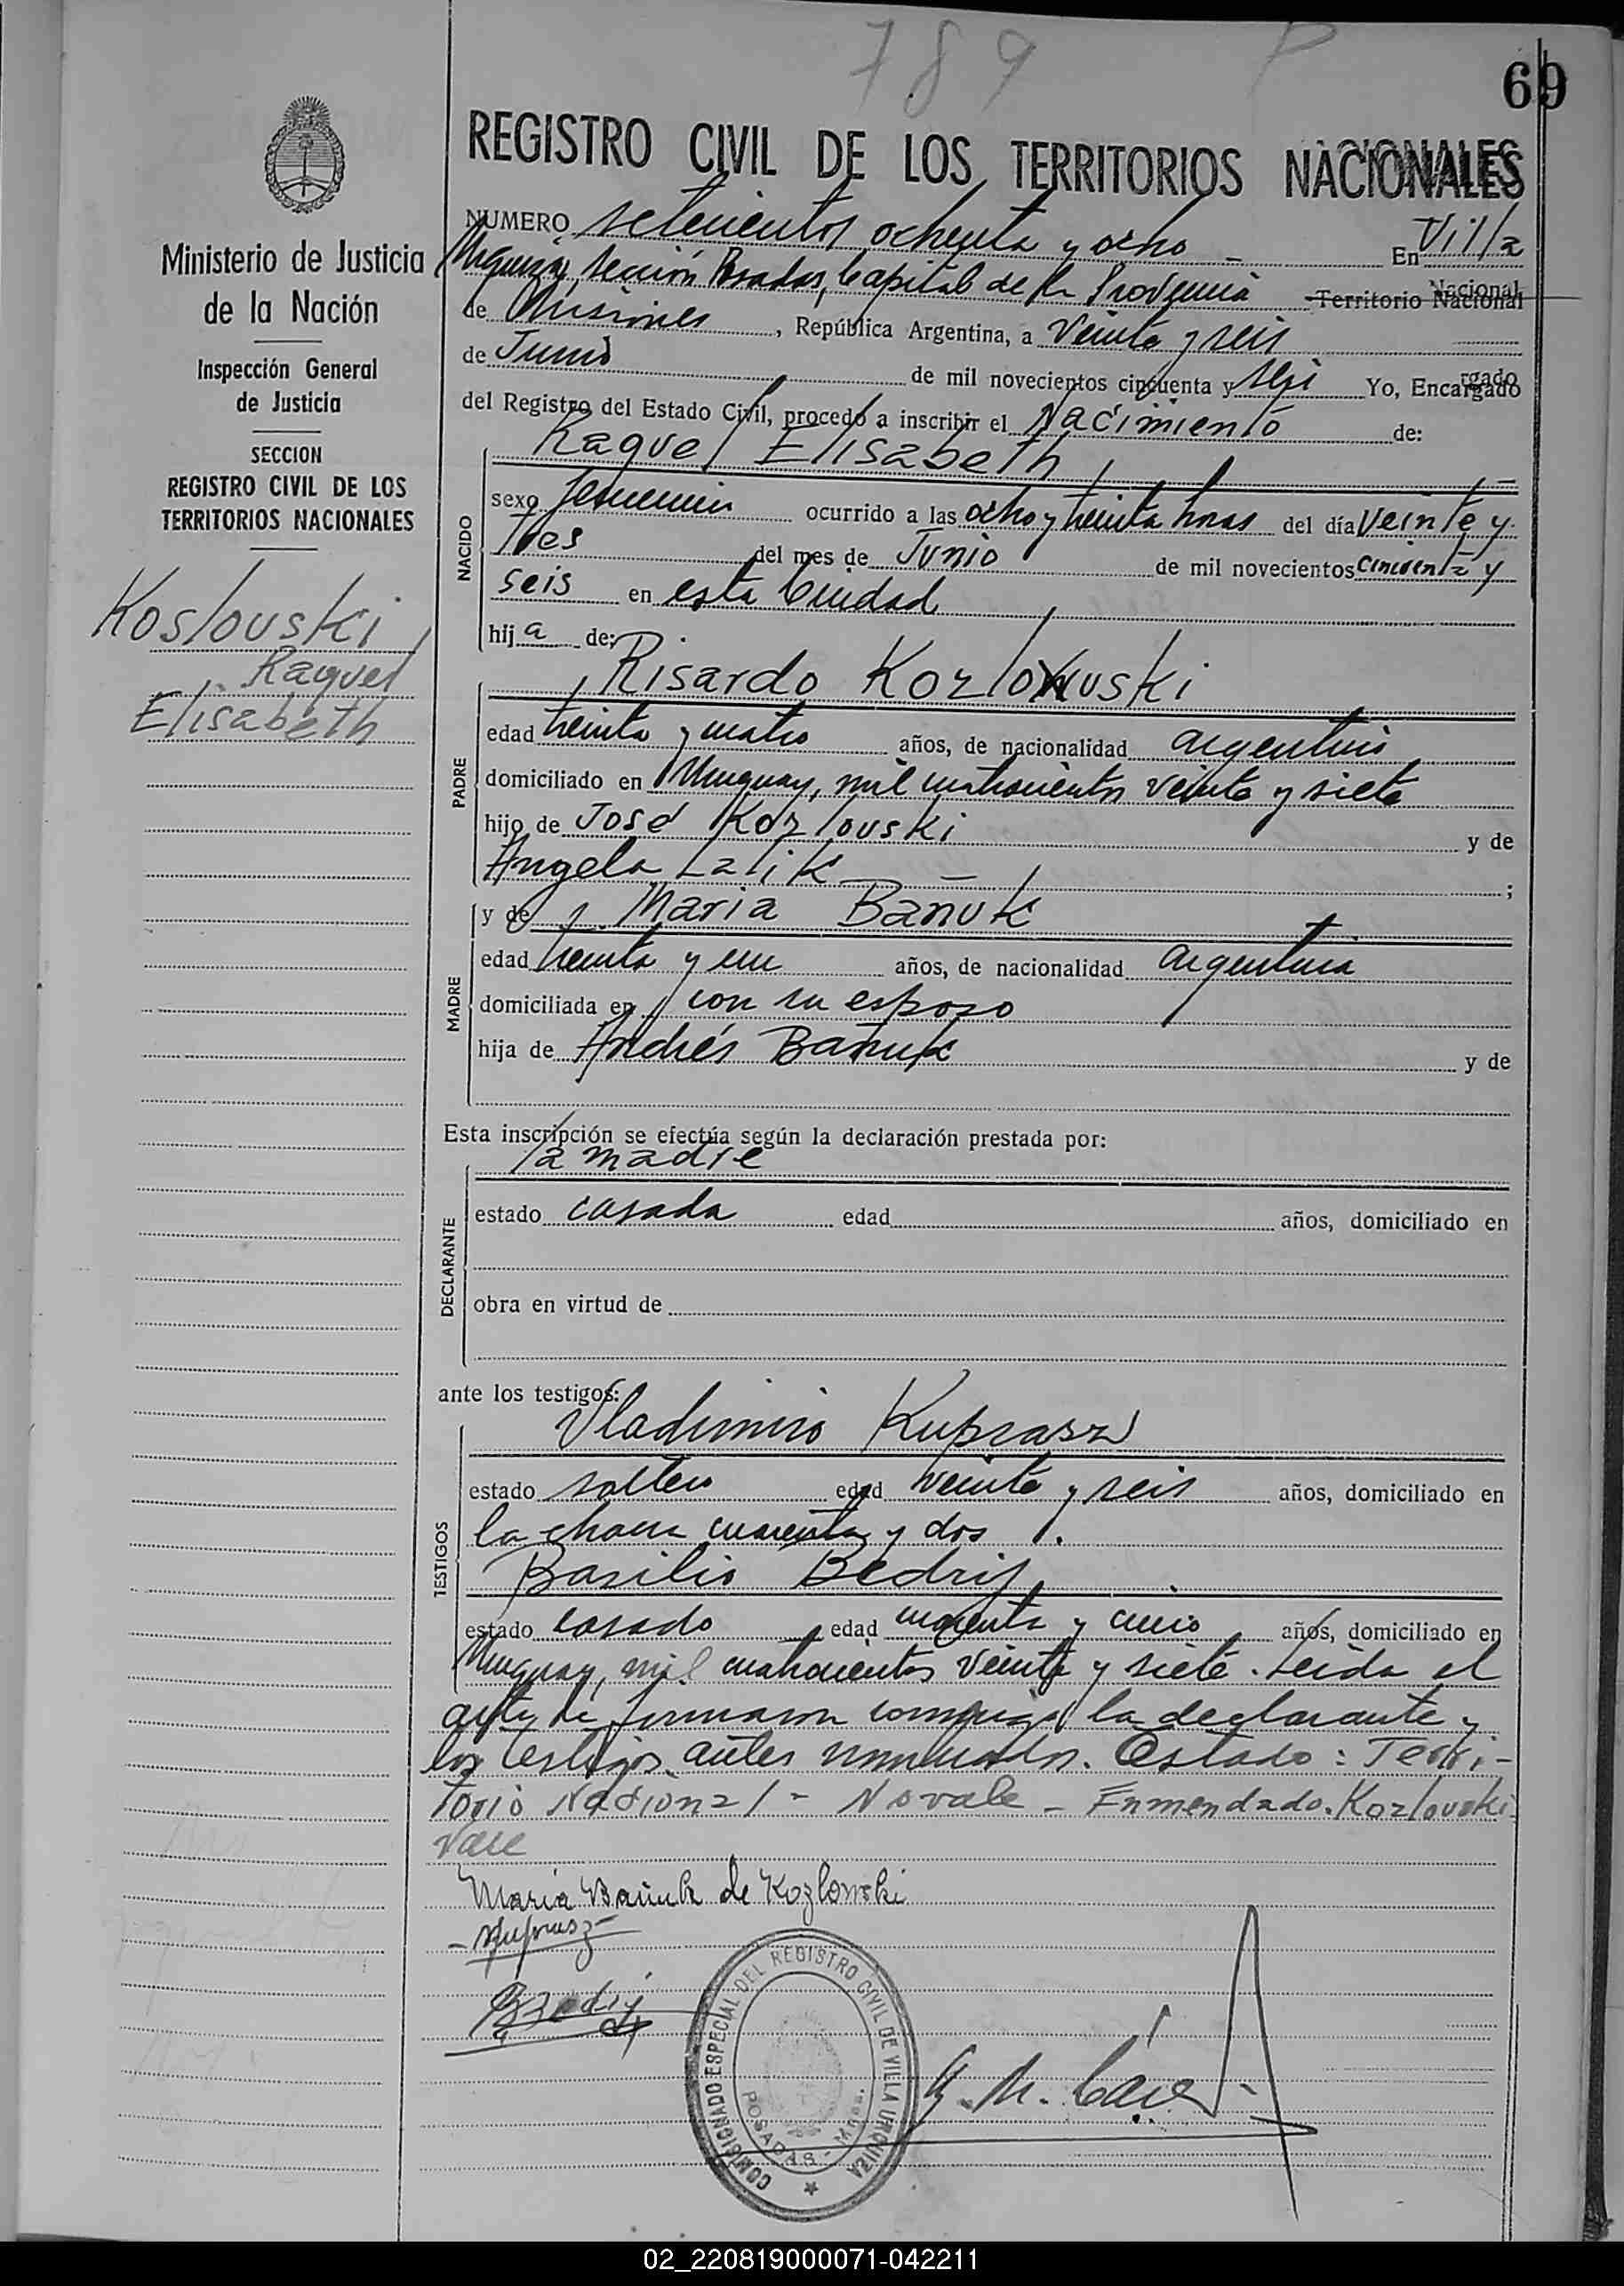 789
69
REGISTRO CIVIL DE LOS TERRITORIOS NACIONALES
Ministerio de Justicia
de la Nación
Inspección General
de Justicia
SECCION
REGISTRO CIVIL DE LOS
TERRITORIOS NACIONALES
Koslouski
Raquel
Elisabeth
NUMERO setecientos ochenta y ocho En Villa
Urquiza, Sección Posadas, Capital de la Provincia Territorio Nacional
de Misiones, República Argentina, a veinte y seis
de Junio de mil novecientos cincuenta y seis Yo, Encargado
del Registro del Estado Civil, procedo a inscribir el Nacimiento de:
NACIDO
Raquel Elisabeth
sexo femenino ocurrido a las ocho y treinta horas del día veinte y
tres del mes de Junio de mil novecientos cincuenta y
seis en esta Ciudad
hija de:
PADRE
Risardo Kozlowuski
edad treinta y cuatro años, de nacionalidad argentino
domiciliado en Uruguay, mil cuatrocientos veinte y siete
hijo de José Kozlouski y de
Angela Lalik;
MADRE
y de Maria Banuk
edad treinta y un años, de nacionalidad argentina
domiciliada en con su esposo
hija de Andrés Banuk y de
Esta inscripción se efectúa según la declaración prestada por:
DECLARANTE
la madre
estado casada edad años, domiciliado en
obra en virtud de
ante los testigos:
TESTIGOS
Vladimiro Kuprasz
estado soltero edad veinte y seis años, domiciliado en
la chacra cuarenta y dos.
Basilio Bedrij
estado casado edad cuarenta y cinco años, domiciliado en
Uruguay, mil cuatrocientos veinte y siete. Leida el
acta la firmaron conmigo la declarante y
los testigos antes nombrados. Testado: Terri-
torio Nacional - No vale - Enmendado. Kozlouski
Vale
Maria Banuk de Kozlowski
Kuprasz
Bedrij
COMISIONADO ESPECIAL DEL REGISTRO CIVIL DE VILLA URQUIZA
POSADAS - Mnes.
02_220819000071-042211